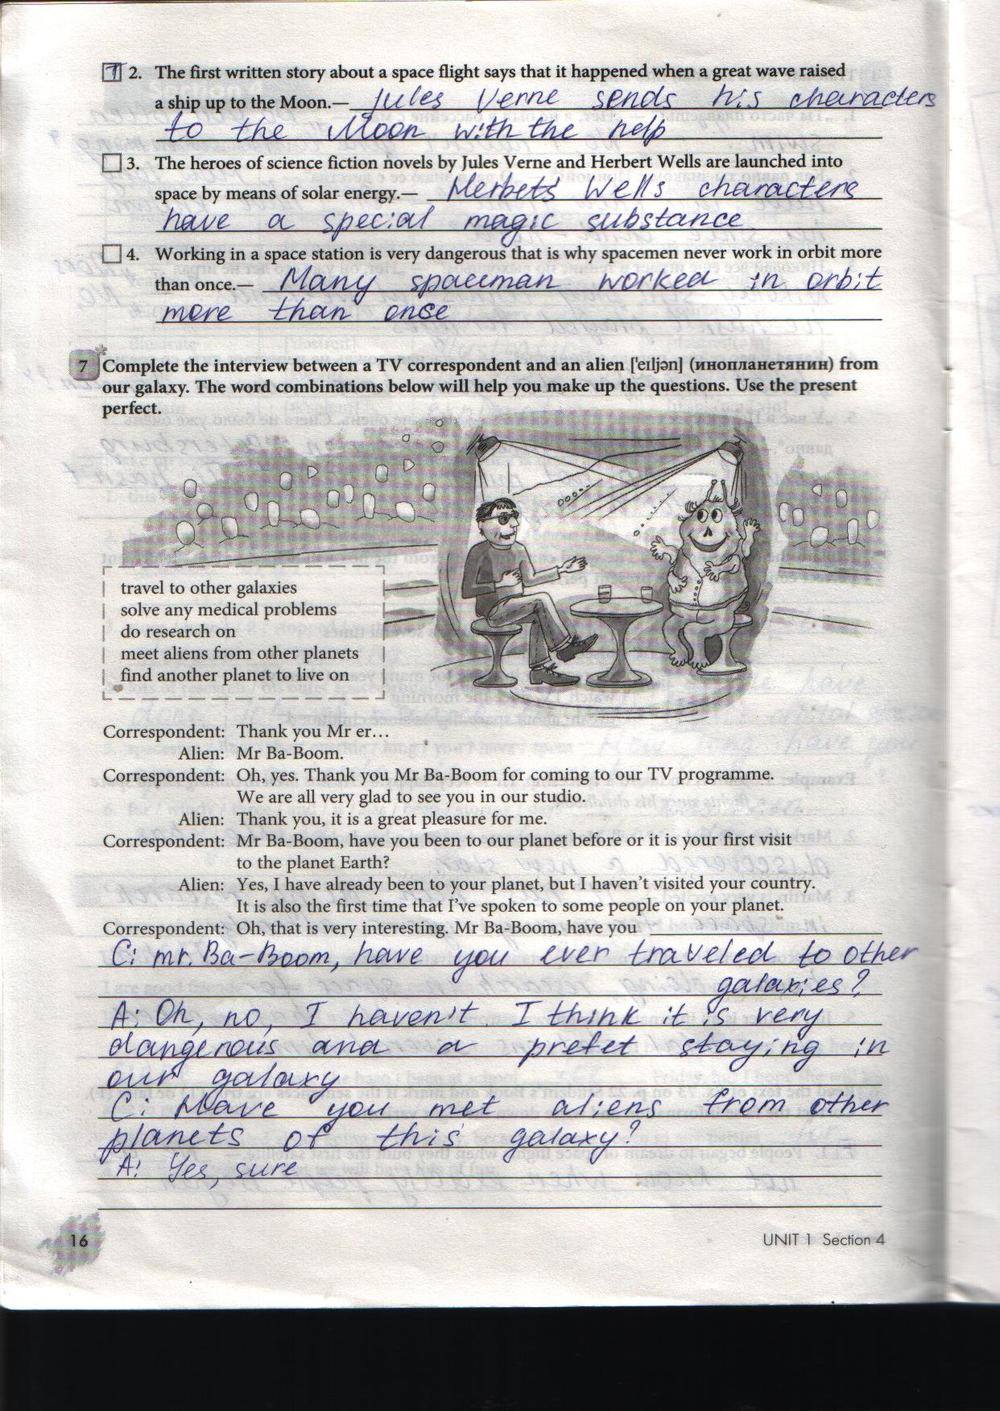 2. The first written story about a space flight says that it happened when a great wave raised
a ship up to the Moon.— Jules Verne sends his characters
to the Moon with the help
3. The heroes of science fiction novels by Jules Verne and Herbert Wells are launched into
space by means of solar energy.— Herbets Wells characters
have a special magic substance
4. Working in a space station is very dangerous that is why spacemen never work in orbit more
than once.— Many spaceman worked in orbit
more than once
7 Complete the interview between a TV correspondent and an alien ['eɪljən] (инопланетянин) from
our galaxy. The word combinations below will help you make up the questions. Use the present
perfect.
travel to other galaxies
solve any medical problems
do research on
meet aliens from other planets
find another planet to live on
Correspondent: Thank you Mr er...
Alien: Mr Ba-Boom.
Correspondent: Oh, yes. Thank you Mr Ba-Boom for coming to our TV programme.
We are all very glad to see you in our studio.
Alien: Thank you, it is a great pleasure for me.
Correspondent: Mr Ba-Boom, have you been to our planet before or it is your first visit
to the planet Earth?
Alien: Yes, I have already been to your planet, but I haven't visited your country.
It is also the first time that I've spoken to some people on your planet.
Correspondent: Oh, that is very interesting. Mr Ba-Boom, have you
C: mr. Ba-Boom, have you ever traveled to other
galaxies?
A: Oh, no, I haven't I think it is very
dangerous and a prefet staying in
our galaxy
C: Have you met aliens from other
planets of this galaxy?
A: Yes, sure
16
UNIT 1 Section 4